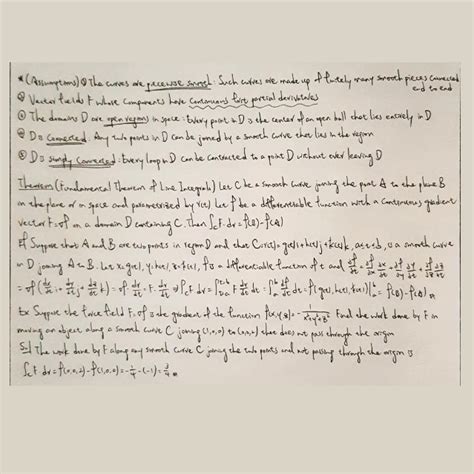 *(Assumptions) ① The curves are piecewise smooth: Such curves are made up of finitely many smooth pieces connected end to end
② Vector fields F whose components have continuous first partial derivatives
③ The domains D are open regions in space: Every point in D is the center of an open ball that lies entirely in D
④ D is connected: Any two points in D can be joined by a smooth curve that lies in the region
⑤ D is simply connected: Every loop in D can be contracted to a point D without ever leaving D
Theorem (Fundamental Theorem of Line Integrals) Let C be a smooth curve joining the point A to the B
in the plane or in space and parametrized by r(t). Let f be a differentiable function with a continuous gradient
vector F=∇f on a domain D containing C. Then ∫_C F·dr = f(B)-f(A)
Pf Suppose that A and B are two points in region D and that C: r(t)=g(t)i+h(t)j+k(t)k, a≤t≤b, is a smooth curve
in D joining A to B. Let x=g(t), y=h(t), z=k(t), f is a differentiable function of t and
= ∇f·(dx/dt i + dy/dt j + dz/dt k) = ∇f·dr/dt = F·dr/dt ⇒ ∫_C F·dr = = f(g(t),h(t),k(t))|_a^b = f(B)-f(A)
Ex Suppose the force field F=∇f is the gradient of the function f(x,y,z) = -1/(x²+y²+z²) Find the work done by F in
moving an object along a smooth curve C joining (1,0,0) to (0,0,2) that does not pass through the origin
Sol The work done by F along any smooth curve C joining the two points and not passing through the origin is
∫_C F·dr = f(0,0,2)-f(1,0,0) = -1/4-(-1) = 3/4